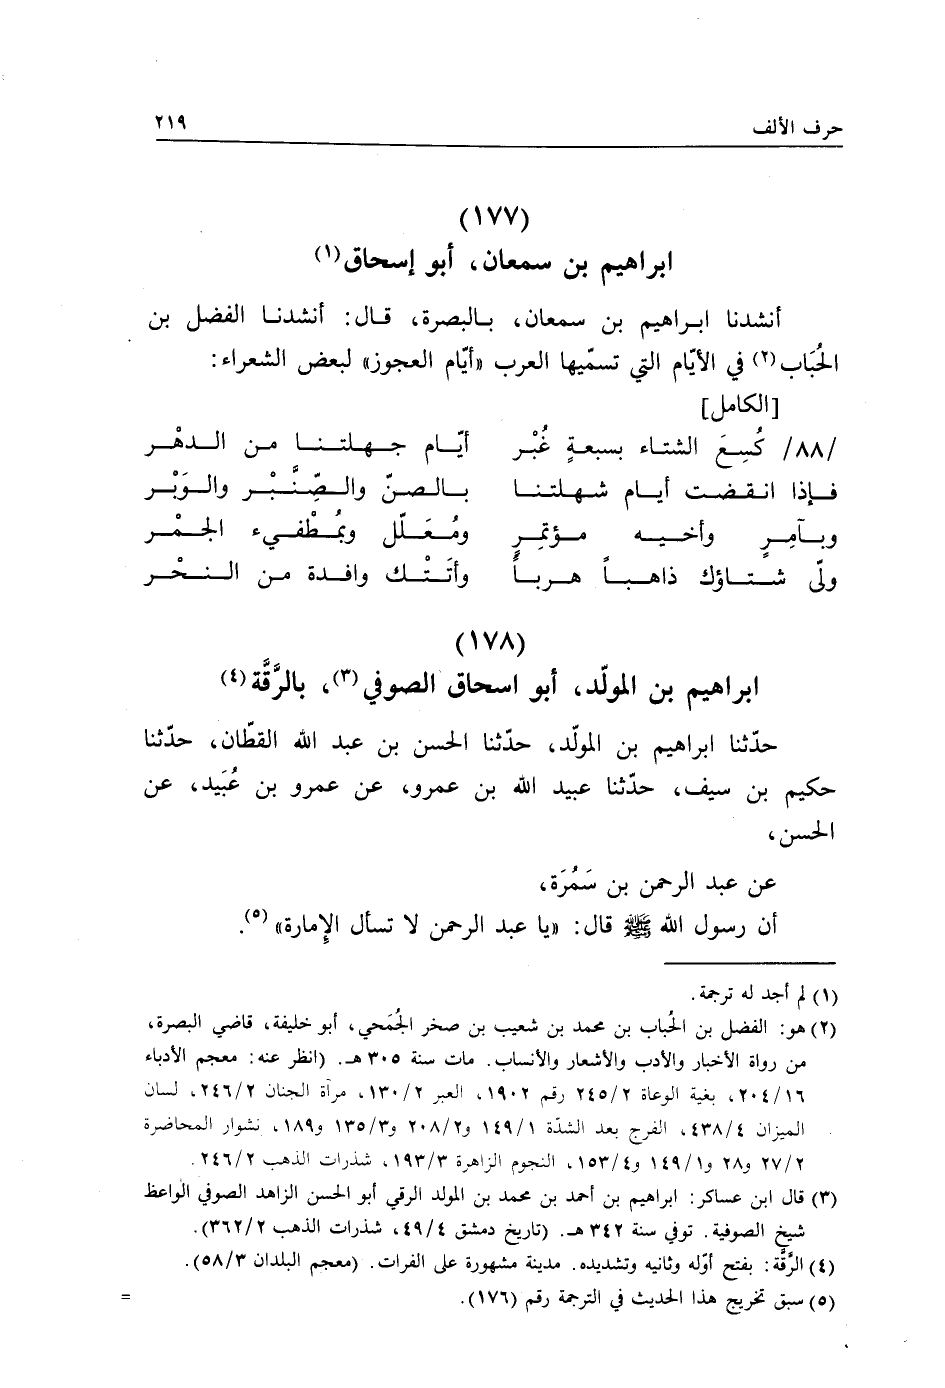 حرف الألف ٢١٩
(١٧٧)
ابراهيم بن سمعان، أبو إسحاق(١)
أنشدنا ابراهيم بن سمعان، بالبصرة، قال: أنشدنا الفضل بن
الحُبَاب(٢) في الأيّام التي تسمّيها العرب «أيّام العجوز» لبعض الشعراء:
[الكامل]
/٨٨/ كُسِعَ الشتاء بسبعةٍ غُبْر أيّام جهلتنا من الدهْر
فإذا انقضت أيام شهلتنا بالصنّ والصِّنَّبْر والوَبْر
وبآمِرٍ وأخيه مؤتمِرٍ ومُعَلّل وبمُطْفيء الجمْر
ولّى شتاؤك ذاهباً هرباً وأتَتْك وافدة من النحْر
(١٧٨)
ابراهيم بن المولّد، أبو اسحاق الصوفي(٣)، بالرَّقَّة(٤)
حدّثنا ابراهيم بن المولّد، حدّثنا الحسن بن عبد الله القطّان، حدّثنا
حكيم بن سيف، حدّثنا عبيد الله بن عمرو، عن عمرو بن عُبَيد، عن
الحسن،
عن عبد الرحمن بن سَمُرَة،
أن رسول الله ﷺ قال: «يا عبد الرحمن لا تسأل الإمارة»(٥).
(١) لم أجد له ترجمة.
(٢) هو: الفضل بن الحُباب بن محمد بن شعيب بن صخر الجُمَحي، أبو خليفة، قاضي البصرة،
من رواة الأخبار والأدب والأشعار والأنساب. مات سنة ٣٠٥ هـ. (انظر عنه: معجم الأدباء
٢٠٤/١٦، بغية الوعاة ٢٤٥/٢ رقم ١٩٠٢، العبر ١٣٠/٢، مرآة الجنان ٢٤٦/٢، لسان
الميزان ٤٣٨/٤، الفرج بعد الشدّة ١٤٩/١ و٢٠٨/٢ و١٣٥/٣ و١٨٩، نشوار المحاضرة
٢٧/٢ و٢٨ و١٤٩/١ و١٥٣/٤، النجوم الزاهرة ١٩٣/٣، شذرات الذهب ٢٤٦/٢.
(٣) قال ابن عساكر: ابراهيم بن أحمد بن محمد بن المولد الرقي أبو الحسن الزاهد الصوفي الواعظ
شيخ الصوفية. توفي سنة ٣٤٢ هـ. (تاريخ دمشق ٤٩/٤، شذرات الذهب ٣٦٢/٢).
(٤) الرَّقَّة: بفتح أوّله وثانيه وتشديده. مدينة مشهورة على الفرات. (معجم البلدان ٥٨/٣).
(٥) سبق تخريج هذا الحديث في الترجمة رقم (١٧٦). =